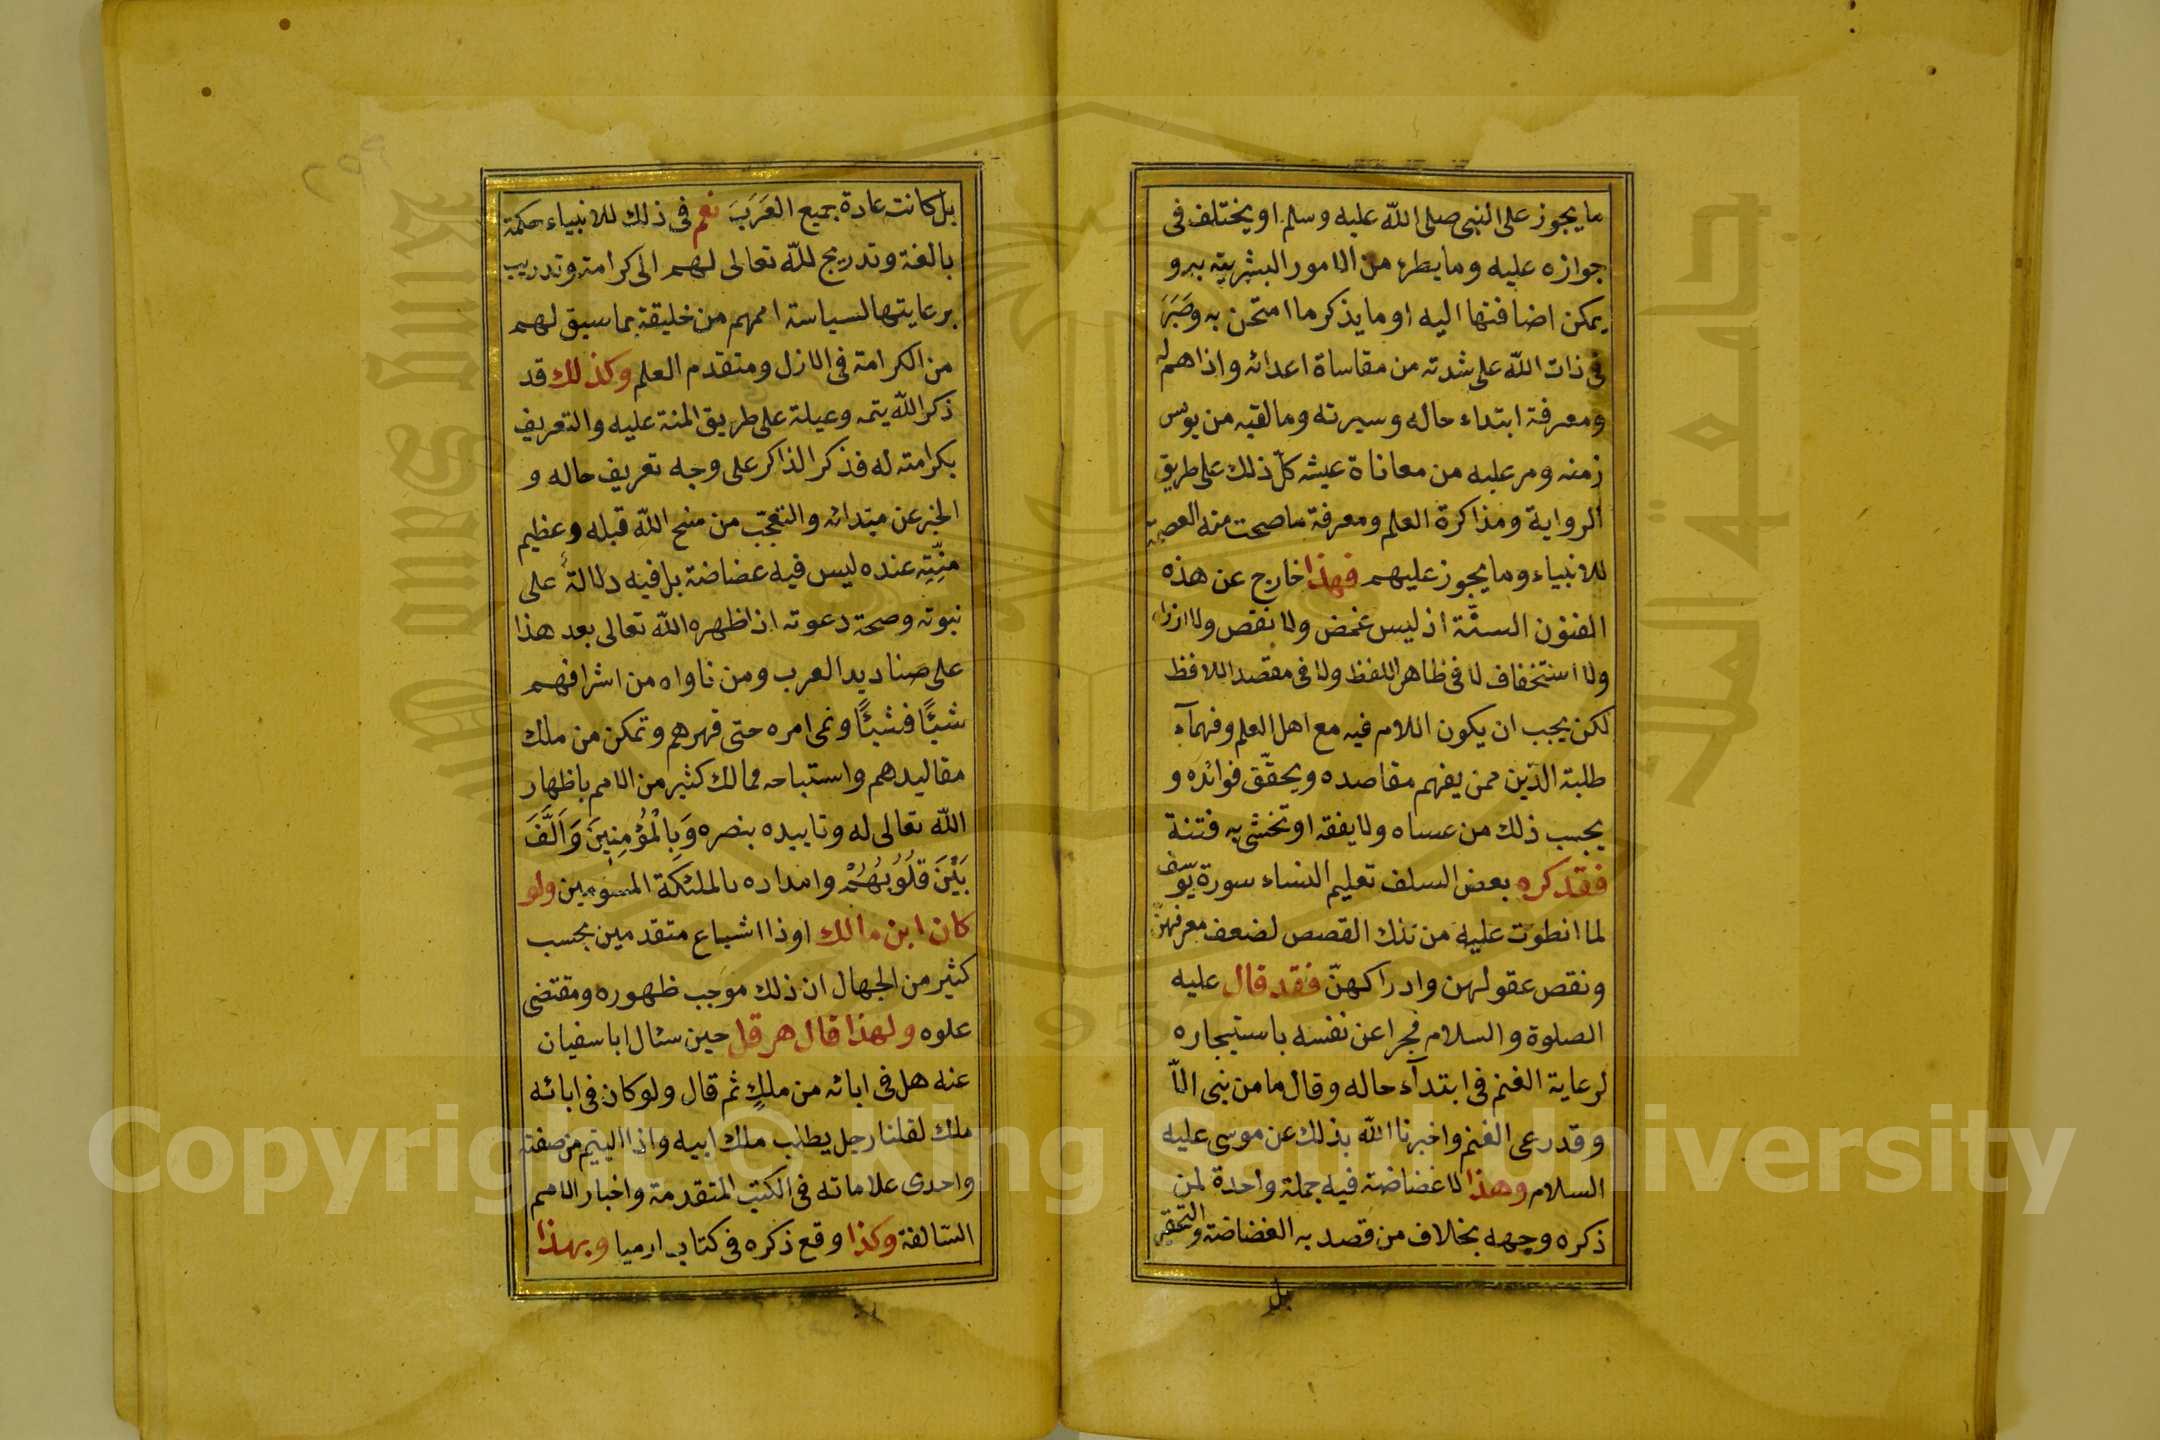 ما يجوز على النبى صلى الله عليه وسلم او يختلف فى
جوازه عليه وما يطرء من الامور البشرية به و
يمكن اضافتها اليه او ما يذكر ما امتحن به وصَبَرَ
فى ذات الله على شدته من مقاساة اعدائه واذا هم له
ومعرفة ابتداء حاله وسيرته وما لقيه من بوس
زمنه ومر عليه من معاناة عيشه كلّ ذلك على طريق
الرواية ومذاكرة العلم ومعرفة ما صحت منه العصمة
للانبياء وما يجوز عليهم فهذا خارج عن هذه
الفنون الستّة اذ ليس غمض ولا نقص ولا ازرا
ولا استخفاف لا فى ظاهر اللفظ ولا فى مقصد اللافظ
لكن يجب ان يكون اللام فيه مع اهل العلم وفهمآء
طلبة الدّين ممن يفهم مقاصده ويحقّق فوائده و
يجب ذلك من عساه ولا يفقه او تخشى به فتنة
فقد كره بعض السلف تعليم النساء سورة يوسف
لما انطوت عليه من تلك القصص لضعف معرفتهنّ
ونقص عقولهن وادراكهنّ فقد قال عليه
الصلوة والسلام مخبرا عن نفسه باستيجاره
لرعاية الغنم فى ابتدآء حاله وقال ما من نبى الاّ
وقد رعى الغنم واخبرنا الله بذلك عن موسى عليه
السلام وهذا لا غضاضة فيه جملة واحدة لمن
ذكره وجهه بخلاف من قصد به الغضاضة والتحقير
بل
٢٩٩
بل كانت عادة جميع العَرَبَ نعم فى ذلك للانبياء حكمة
بالغة وتدريج لله تعالى لهم الى كرامته وتدريب
برعايتها لسياسة اممهم من خليقته بما سبق لهم
من الكرامة فى الازل ومتقدم العلم وكذلك قد
ذكر الله يتمه وعيلة على طريق المنة عليه والتعريف
بكرامته له فذكر الذاكر على وجه تعريف حاله و
الخبر عن مبتدائه والتعجّب من منح الله قبله وعظيم
منّتِه عنده ليس فيه غضاضة بل فيه دلالة على
نبوته وصحة دعوته اذ اظهره الله تعالى بعد هذا
على صناديد العرب ومن ناواه من اشرافهم
شيئًا فشيئًا ونمى امره حتى قهرهم وتمكن من ملك
مقاليدهم واستباحه ممالك كثير من الامم باظهار
الله تعالى له وتاييده بنصره وَبِالْمُؤْمِنِينَ وَاَلَّفَ
بَيْنَ قُلُوبُهُمْ وامداده بالملئكة المسومين ولو
كان ابن مالك او ذا اشياع متقدمين بحسب
كثير من الجهال ان ذلك موجب ظهوره ومقتضى
علوه ولهذا قال هرقل حين سئال ابا سفيان
عنه هل فى ابائه من ملكٍ ثم قال ولو كان فى ابائه
ملك لقلنا رجل يطلب ملك ابيه واذا اليتيم من صفته
واحدى علاماته فى الكتب المتقدمة واخبار الامم
السّالفة وكذا وقع ذكره فى كتاب ارميا وبهذا
Copyright © King Saud University
جامعة الملك سعود
King Saud University
1957